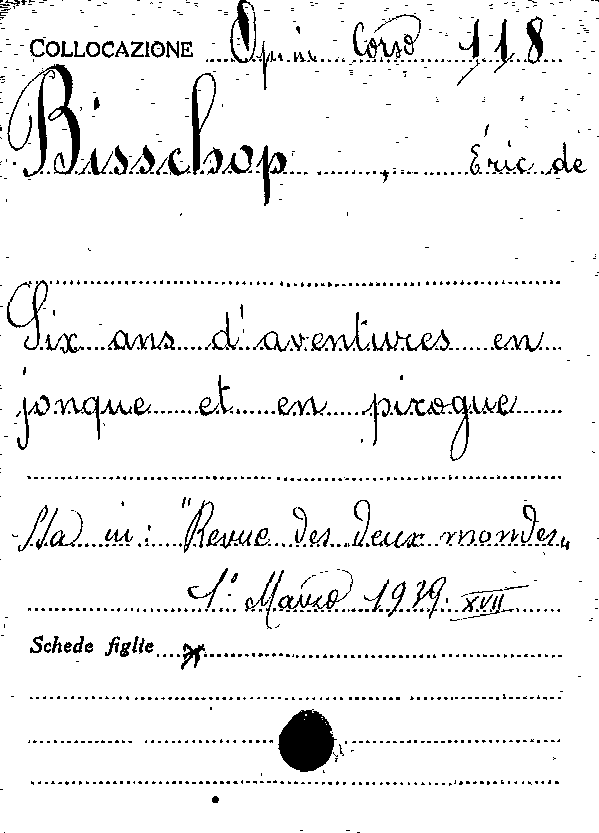 COLLOCAZIONE Op in Corso 118
Bisschop, Éric de
Six ans d'aventures en
jonque et en pirogue
Sta in: "Revue des deux mondes„
1° Marzo 1939. XVII
Schede figlie